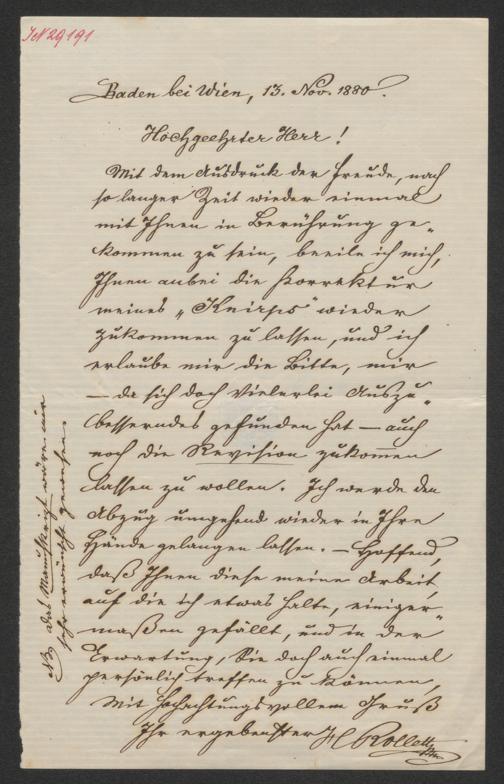 JN 29191
Baden bei Wien, 13. Nov. 1880.
Hochgeehrter Herr!
Mit dem Ausdruck der Freude, nach
so langer Zeit wieder einmal
mit Ihnen in Berührung ge-
kommen zu sein, beeile ich mich,
Ihnen anbei die Korrektur
meines „Knirps“ wieder
zukommen zu lassen, und ich
erlaube mir die Bitte, mir
— da sich doch Vielerlei Auszu-
besserndes gefunden hat — auch
noch die Revision zukom̄en
lassen zu wollen. Ich werde den
Abzug umgehend wieder in Ihre
Hände gelangen lassen. — Hoffend,
daß Ihnen diese meine Arbeit,
auf die ich etwas halte, einiger-
maßen gefällt, und in der
Erwartung, Sie doch auch einmal
persönlich treffen zu können,
Mit hochachtungsvollem Gruß
Ihr ergebenster H Rollett
NB das Manuskript wäre mir
sehr erwünscht gewesen.